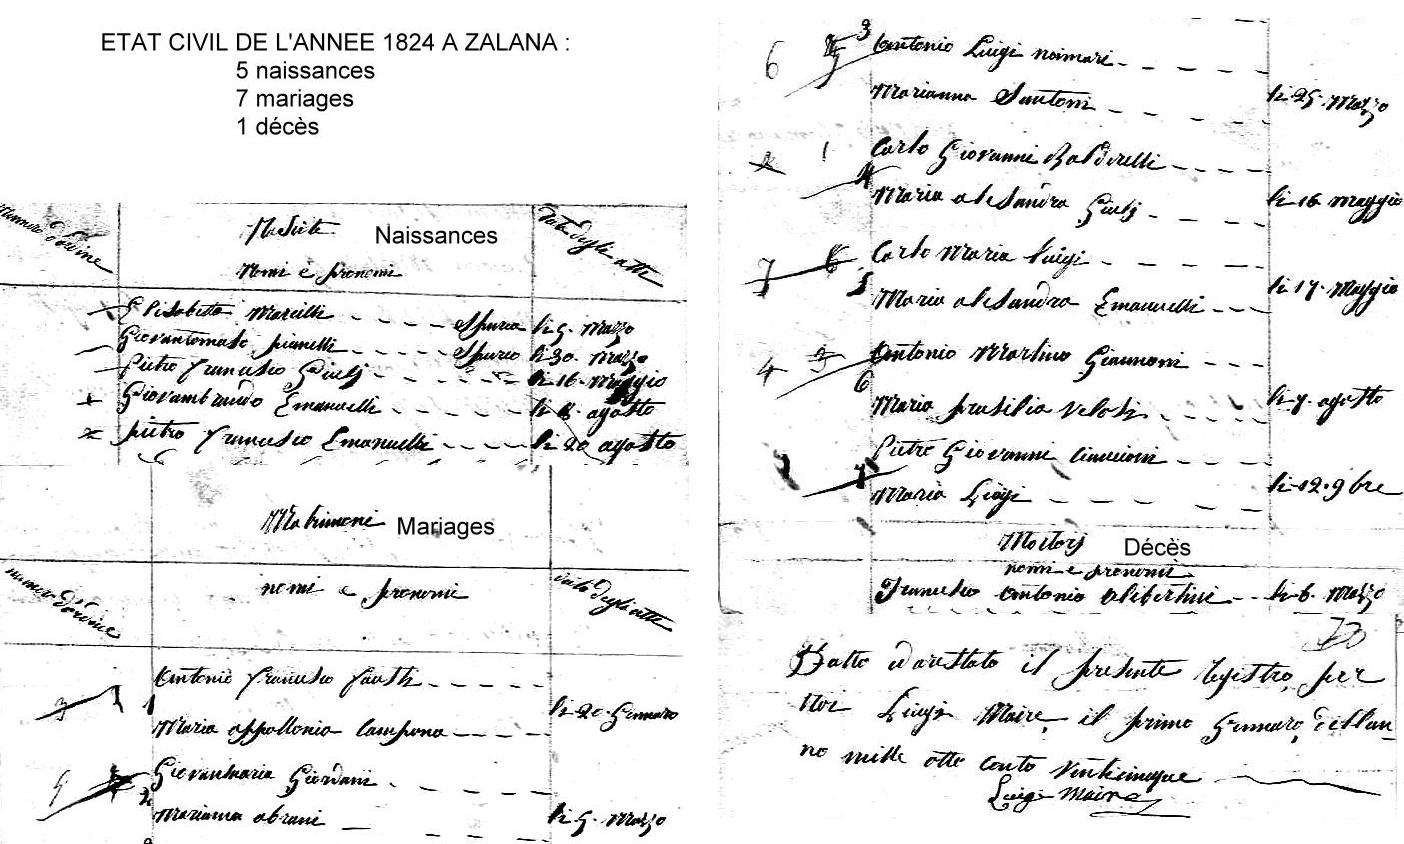 ETAT CIVIL DE L'ANNEE 1824 A ZALANA :
5 naissances
7 mariages
1 décès
numero d'ordine
Naissances
data degli atti
nomi e pronomi
Elisabetta Marcelli Spuria li 5 Marzo
Giovantomaso pianelli Spurio li 30 Marzo
Pietro Francesco Giulj li 16 Maggio
Giovambrando Emanuelli li 8 agosto
pietro francesco Emanuelli li 20 agosto
Matrimoni Mariages
numero d'ordine
nomi e pronomi
data degli atti
Antonio francesco fausti
Maria appollonia Campana li 20 Gennaro
Giovanmaria Giordani
Marianna abrani li 5 Marzo
6 3 Antonio Luigi
Marianna Santoni li 25 Marzo
Carlo Giovanni Balderelli
Maria alesandra Giulj li 16 maggio
7 Carlo Maria Luigi
Maria alesandra Emanuelli li 17 Maggio
4 6 Antonio Martino Giannoni
Maria prasilia Velosi li 7 agosto
7 Pietro Giovanni
Maria Luigi li 12 9bre
Décès
nomi e pronomi
Francesco Antonio alibertini li 6 Marzo
Fatto ed arestato il presente Registro, per
Noi Luigi Maire, il primo Gennaro dellan
no mille otto cento venticinque
Luigi Maire